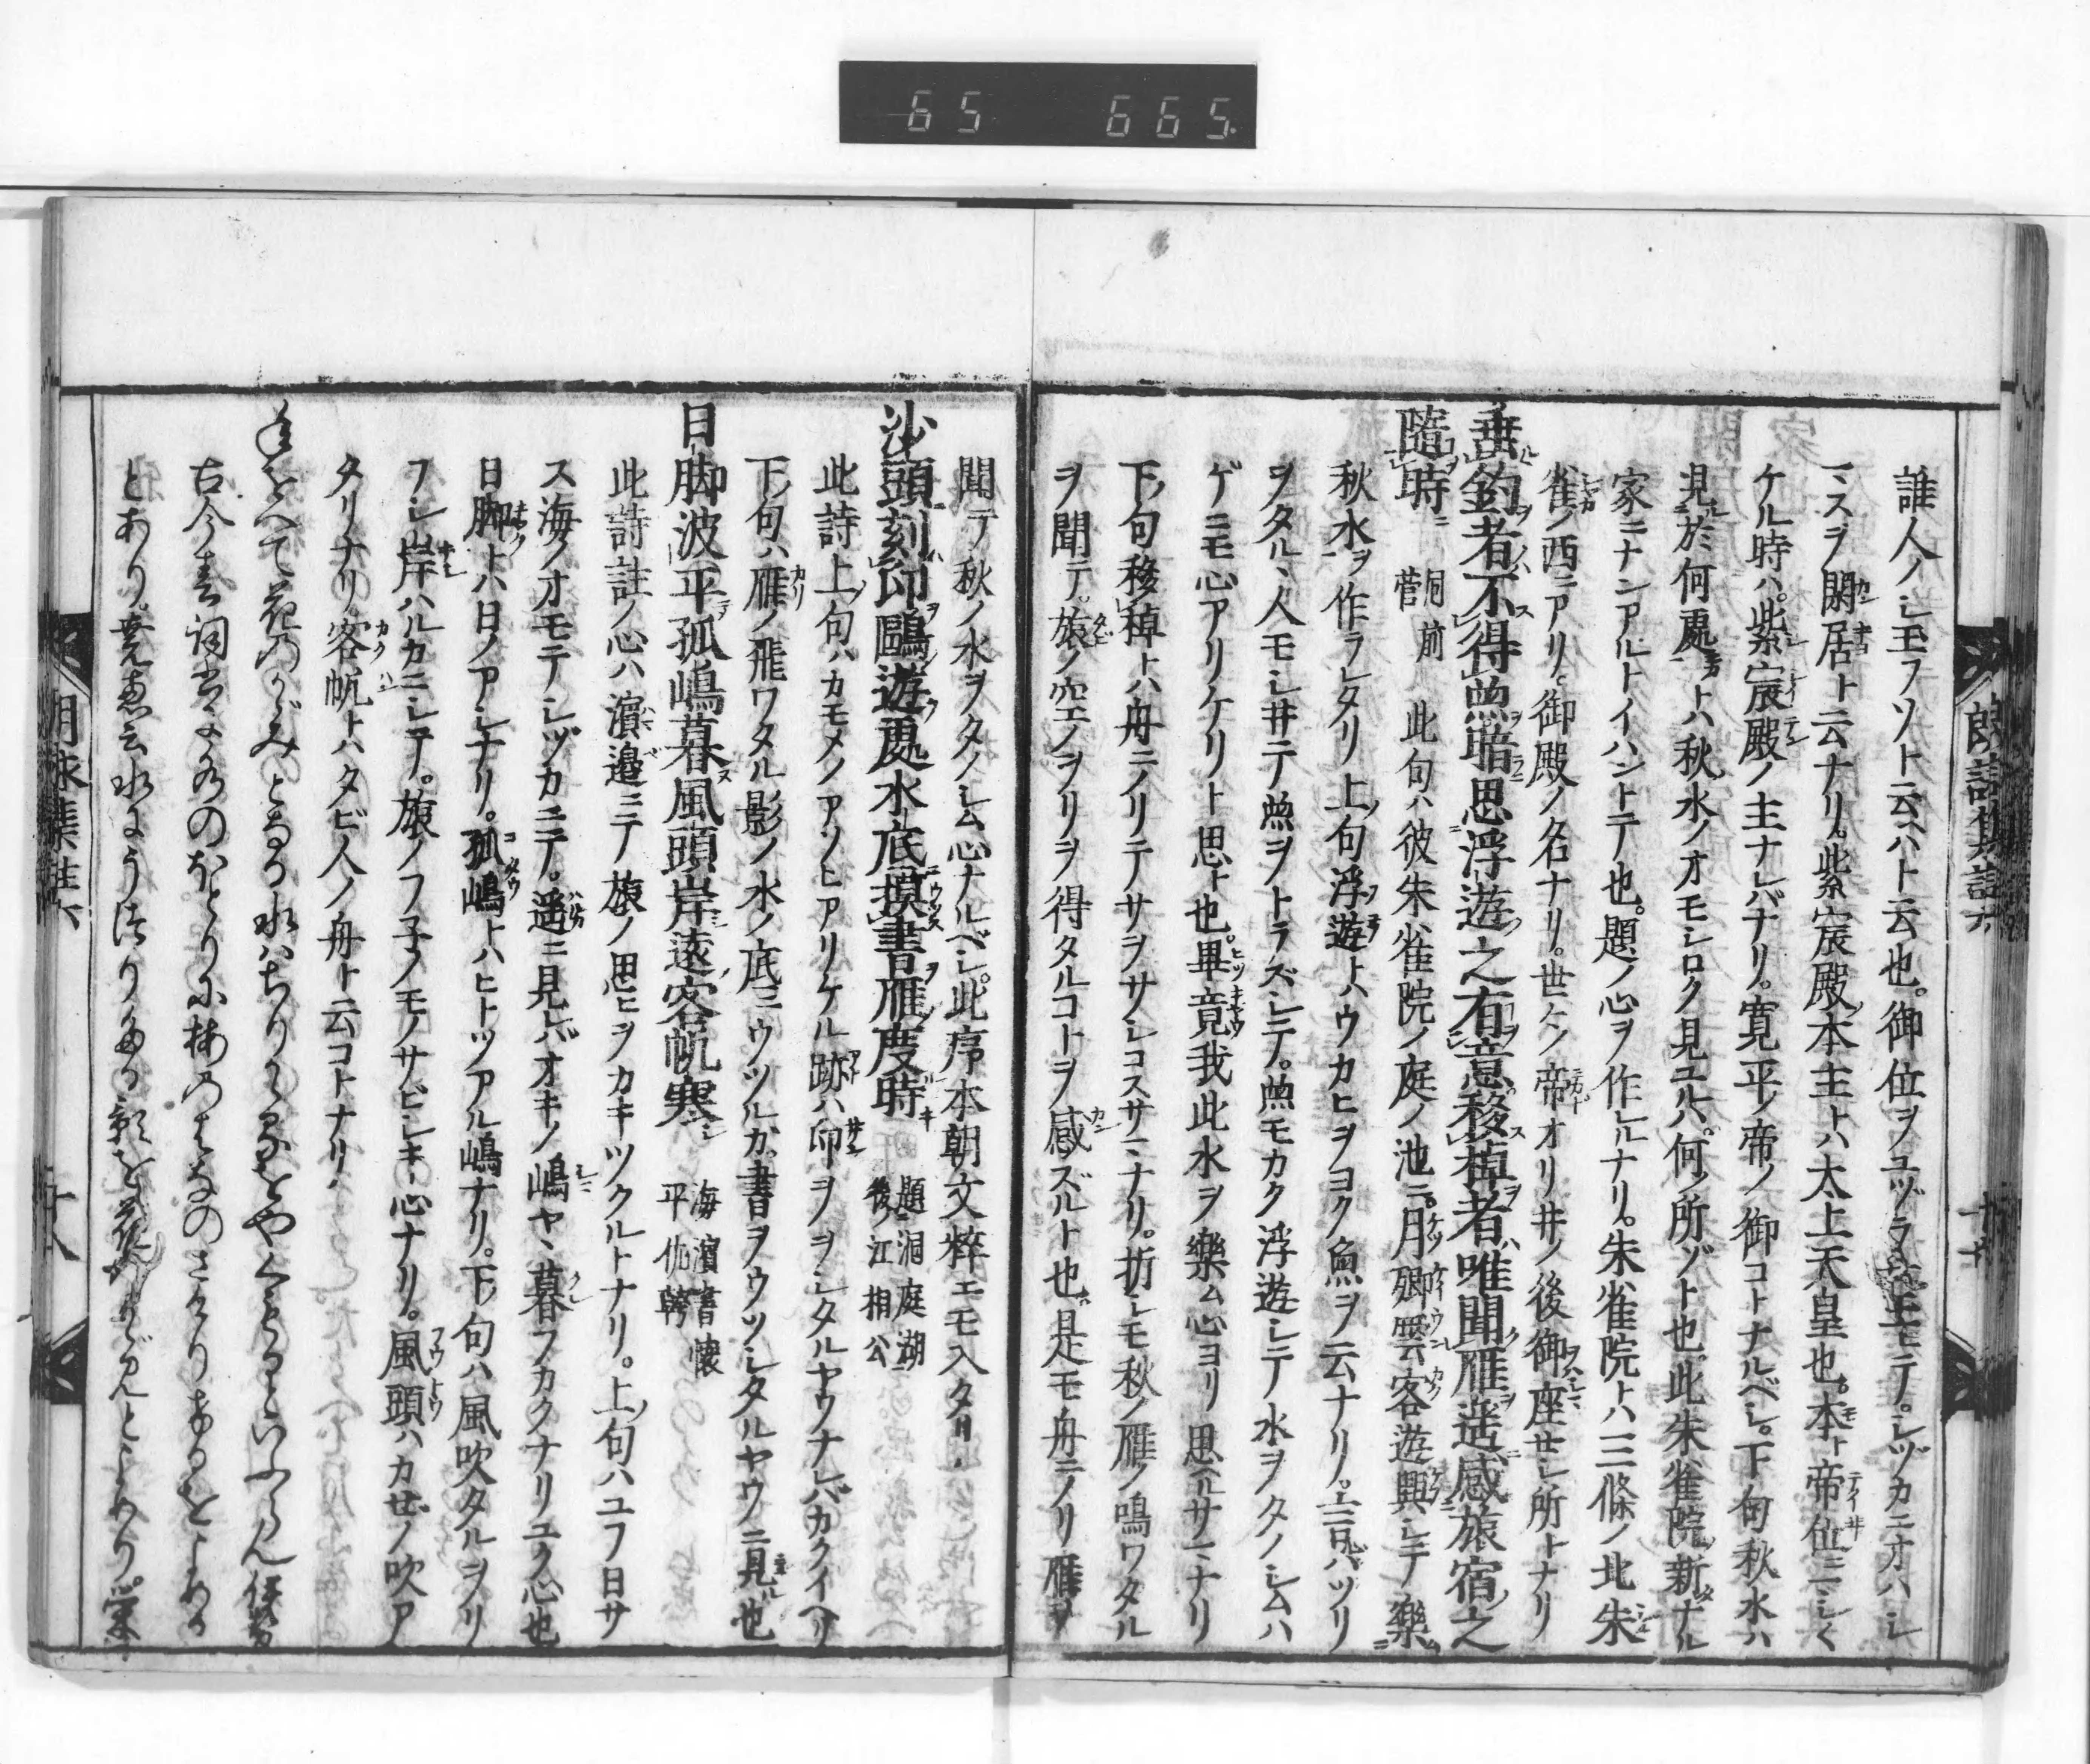 65 665
誰人ノシ玉フソト云ヘハト云也。御位ヲユヅラ玉モテ。シヅカニオハシ
マスヲ閑居ト云ナリ。紫宸殿ノ本主トハ太上天皇也。本ト帝位ニシく
ケル時ハ。紫宸殿ノ主ナレバナリ。寛平ノ帝ノ御コトナルベシ。下句秋水ハ
見於何處トハ秋水ノオモシロク見ユルハ。何ノ所ゾト也。此朱雀院新ナル
家ニナンアルトイハントテ也。題ノ心ヲ作レルナリ。朱雀院トハ三條ノ北朱
雀ノ西ニアリ。御殿ノ名ナリ。世々ノ帝オリ井ノ後御座セシ所トナリ
垂釣者不得魚暗思浮遊之有意移棹者唯聞雁遥感旅宿之
隨時 同前 菅 此句ハ彼朱雀院ノ庭ノ池ニ。月卿雲客遊興シテ樂
秋水ヲ作ラレタリ上ノ句浮遊トハウカヒヲヨク魚ヲ云ナリ。言ハツリ
ヲタルヽ人モシ井テ魚ヲトラズシテ。魚モカク浮遊シテ水ヲタノシムハ
ゲニモ心アリケリト思ト也。畢竟我此水ヲ樂ム心ヨリ思ヘルサマナリ
下ノ句移棹トハ舟ニノリテサヲサシコスサマナリ。折シモ秋ノ雁ノ鳴ワタル
ヲ聞テ。旅ノ空ノヲリヲ得タルコトヲ感ズルト也。是モ舟ニノリ雁ヲ
聞テ秋ノ水ヲタノシム心ナルベシ。此序本朝文粹エモ入タリ
沙頭刻印鷗遊處水底摸書雁度時 題洞庭湖 後江相公
此詩上ノ句ハカモメノアソヒアリケル跡ハ印ヲヲシタルヤウナレバカクイヘリ
下ノ句ハ雁ノ飛ワタル影ノ水ノ底ニウツルカ。書ヲウツシタルヤウニ見ル也
日脚波平孤嶋暮風頭岸遠客帆寒 海濱書懐 平佐幹
此詩註ノ心ハ濱邊ニテ旅ノ思ヒヲカキツクルトナリ。上ノ句ハユフ日サ
ス海ノオモテシヅカニテ。遥ニ見レバオキノ嶋ヤヽ暮フカクナリユク心也
日脚トハ日ノアシナリ。孤嶋トハヒトツアル嶋ナリ。下ノ句ハ風吹タルヲリ
フシ岸ハルカニシテ。旅ノフ子ノモノサビシキ心ナリ。風頭ハカゼノ吹ア
タリナリ。客帆トハタビ人ノ舟ト云コトナリ。
年をへて花のかゞみとなる水はちりかゝるをやくもるといふらん 伊勢
古今春
とあり。
朗詠集註六
十八